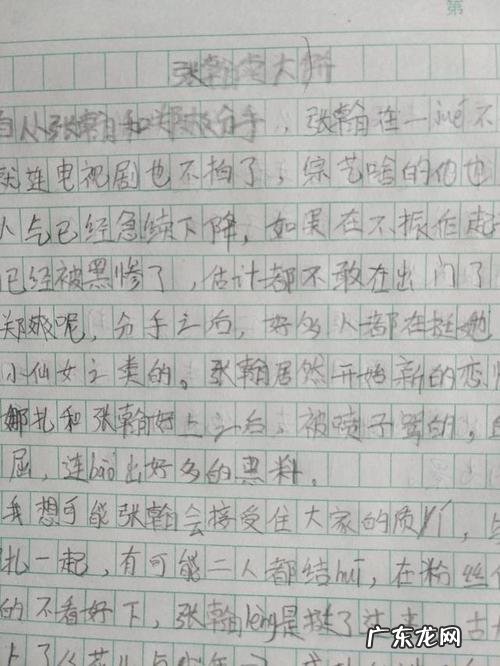 第
张翰卖大饼
自从张翰和郑爽分手，张翰连一部不
就连电视剧也不拍了，综艺啥的他也
人气已经急续下降，如果在不振作起
已经被黑惨了，估计都不敢在出门了
郑爽呢，分手之后，好多人都在挺她
小仙女之类的。张翰居然开始新的恋
娜扎和张翰好上之后，被喷子骂的，
屈，连bào出好多的黑料。
我想可能张翰会接受住大家的质
扎一起，有可能二人都结hūn，在粉丝
的不看好下，张翰lèng是挺了过来
广东龙网
www.gdcplw.com